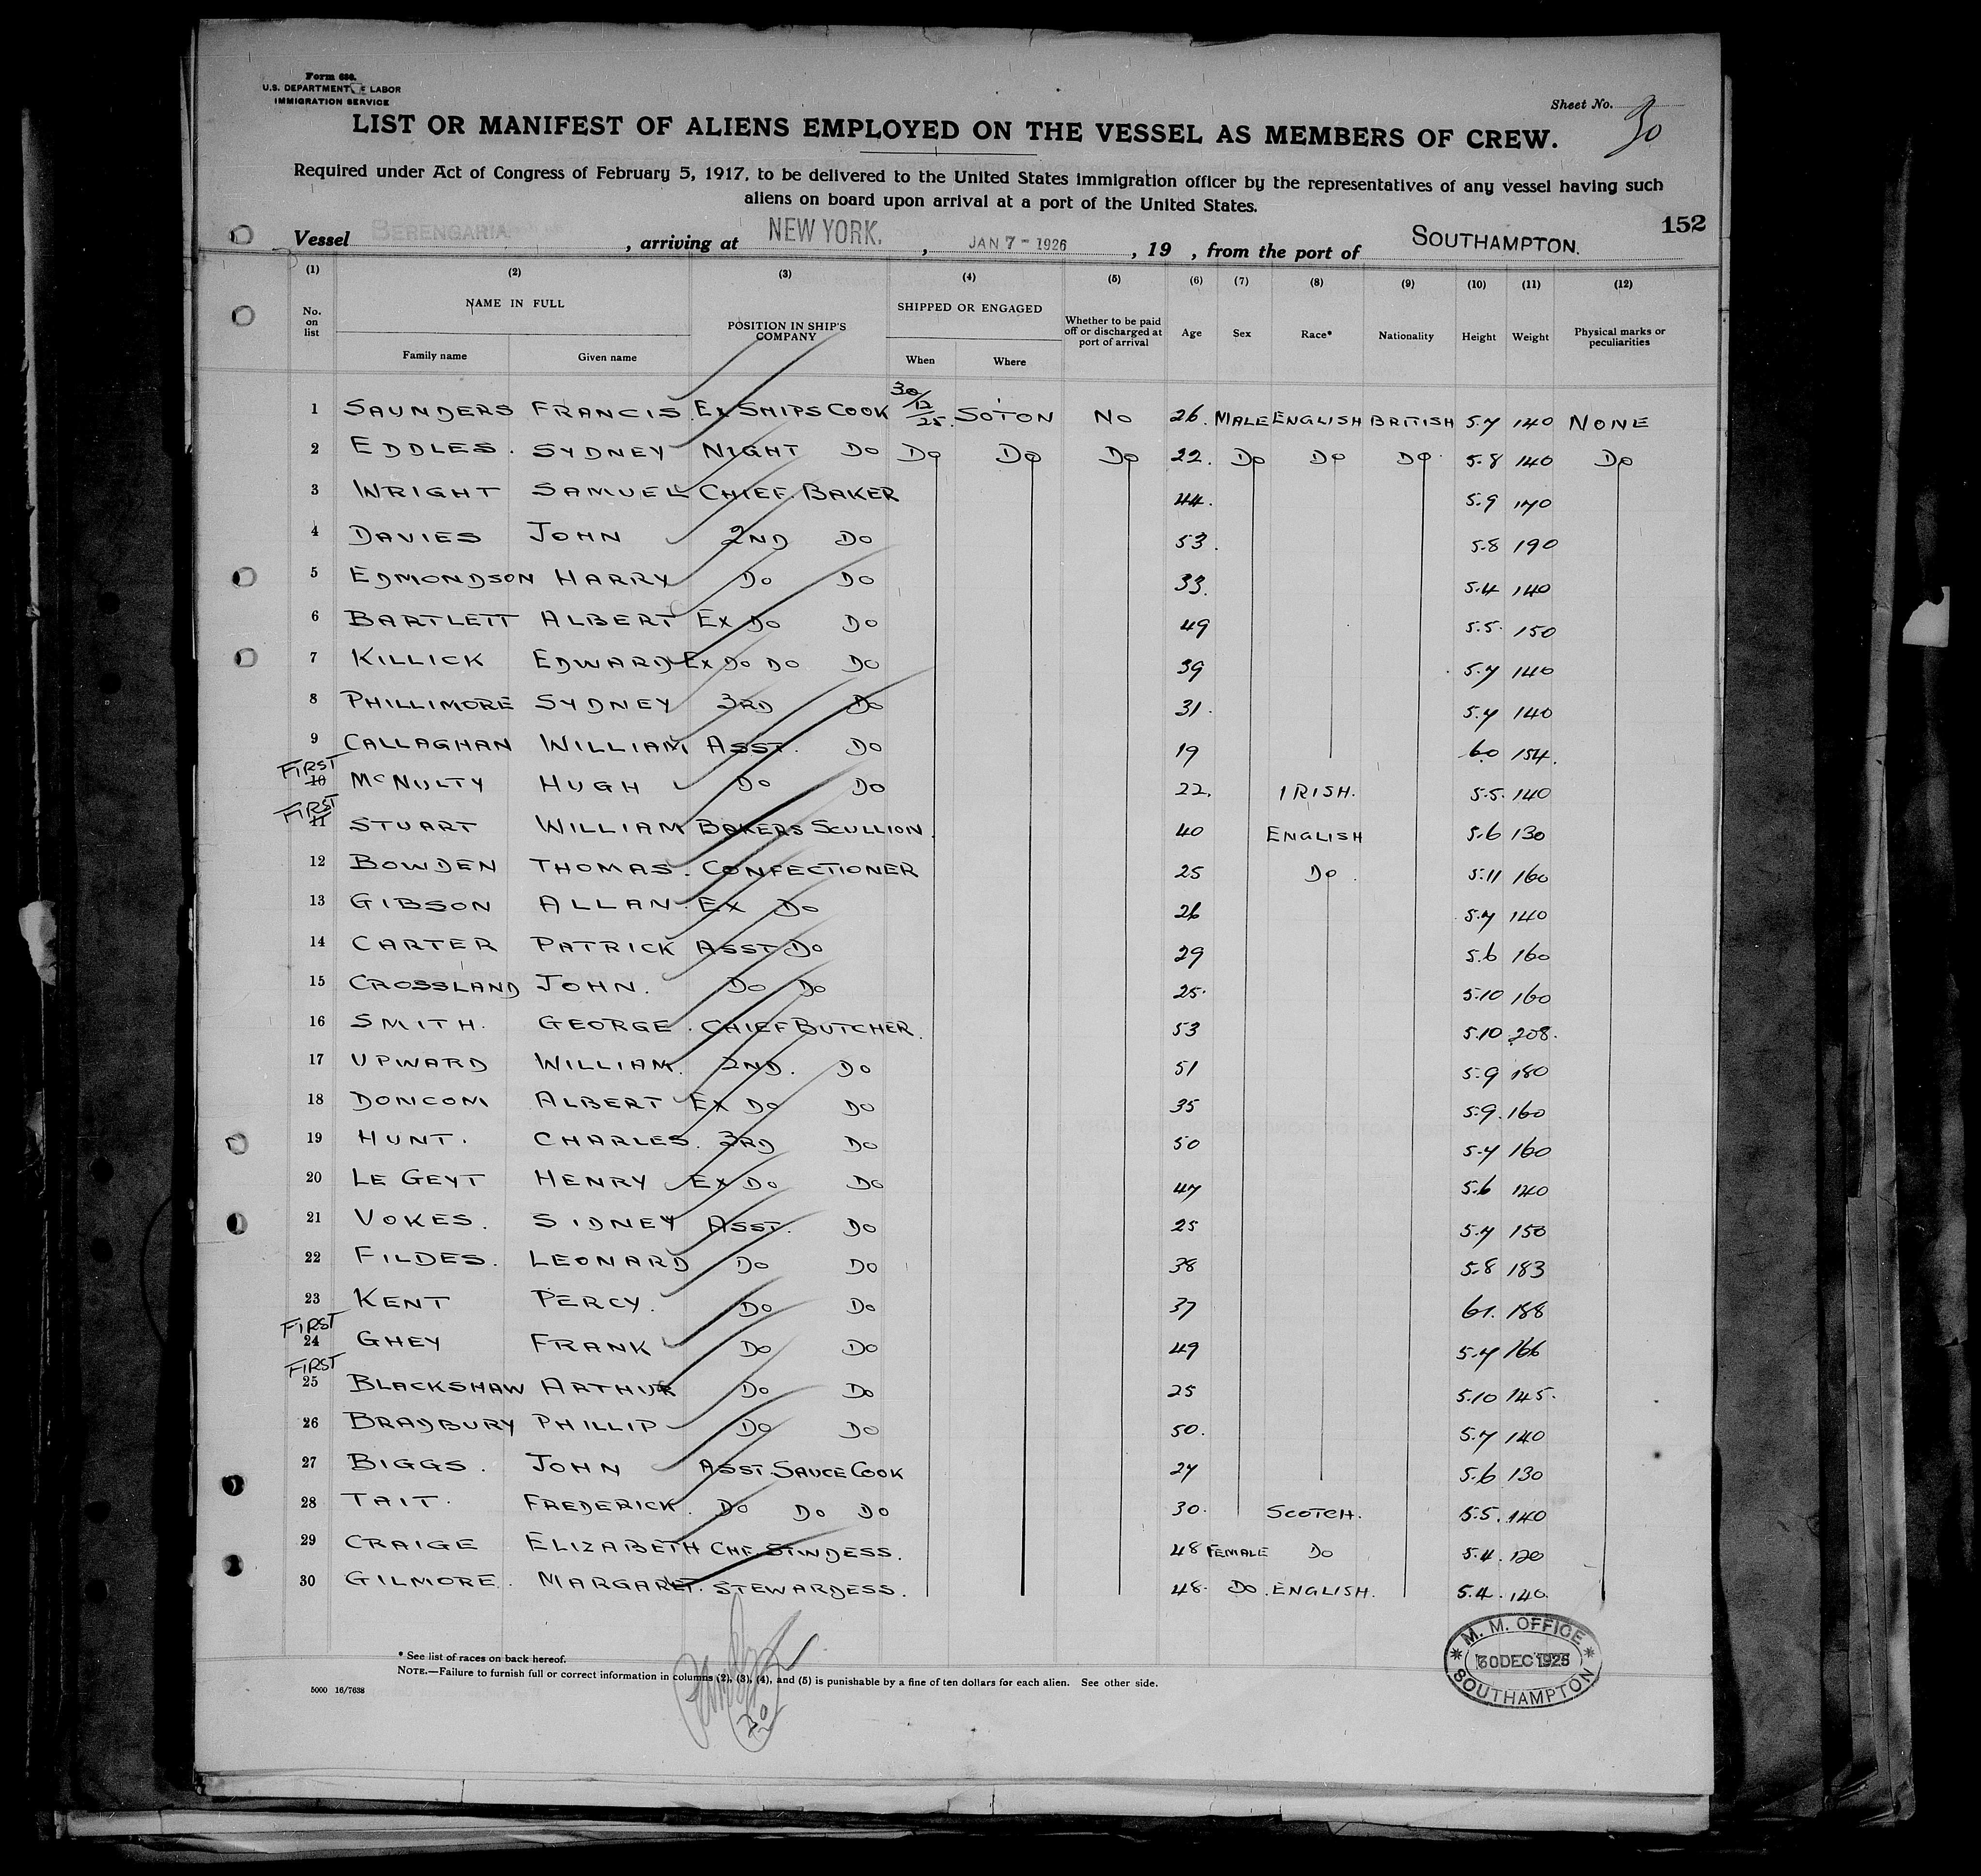 Form 680.
U.S. DEPARTMENT OF LABOR
IMMIGRATION SERVICE
Sheet No. 30
LIST OR MANIFEST OF ALIENS EMPLOYED ON THE VESSEL AS MEMBERS OF CREW.
Required under Act of Congress of February 5, 1917, to be delivered to the United States immigration officer by the representatives of any vessel having such
aliens on board upon arrival at a port of the United States.
152
Vessel BERENGARIA, arriving at NEW YORK, JAN 7 - 1926, 19 , from the port of SOUTHAMPTON.
(1) (2) (3) (4) (5) (6) (7) (8) (9) (10) (11) (12)
No. on list NAME IN FULL POSITION IN SHIP'S COMPANY SHIPPED OR ENGAGED Whether to be paid off or discharged at port of arrival Age Sex Race* Nationality Height Weight Physical marks or peculiarities
Family name Given name When Where
1 SAUNDERS FRANCIS. EX SHIPS COOK 30/12/25. SO'TON NO 26. MALE ENGLISH BRITISH 5.7 140 NONE
2 EDDLES. SYDNEY NIGHT DO DO DO DO 22. DO DO DO 5.8 140 DO
3 WRIGHT SAMUEL CHIEF BAKER 44. 5.9 170
4 DAVIES JOHN 2ND DO 53. 5.8 190
5 EDMONDSON HARRY DO DO 33. 5.4 140
6 BARTLETT ALBERT EX DO DO 49 5.5. 150
7 KILLICK EDWARD EX DO DO DO 39 5.7 140
8 PHILLIMORE SYDNEY 3RD DO 31. 5.7 140
9 CALLAGHAN WILLIAM ASST. DO 19 6.0 154.
FIRST 10 McNULTY HUGH DO DO 22. IRISH. 5.5. 140
FIRST 11 STUART WILLIAM BAKERS SCULLION. 40 ENGLISH 5.6 130
12 BOWDEN THOMAS. CONFECTIONER 25 DO. 5.11 160
13 GIBSON ALLAN. EX DO 26 5.7 140
14 CARTER PATRICK ASST DO 29 5.6 160
15 CROSSLAND JOHN. DO DO 25. 5.10 160
16 SMITH. GEORGE. CHIEF BUTCHER. 53 5.10 208.
17 UPWARD WILLIAM. 2ND. DO 51 5.9 180
18 DOMCOM ALBERT EX DO DO 35 5.9. 160
19 HUNT. CHARLES. 3RD DO 50 5.7 160
20 LE GEYT HENRY EX DO DO 47 5.6 140
21 VOKES. SIDNEY ASST. DO 25 5.7 150
22 FILDES. LEONARD DO DO 38 5.8 183
23 KENT PERCY. DO DO 37 6.1. 188
FIRST 24 GHEY FRANK DO DO 49 5.7 166
FIRST 25 BLACKSHAW ARTHUR DO DO 25 5.10 145.
26 BRADBURY PHILLIP DO DO 50. 5.7 140
27 BIGGS. JOHN ASST. SAUCE COOK 27 5.6 130
28 TAIT. FREDERICK. DO DO DO 30. SCOTCH. 5.5. 140
29 CRAIGE ELIZABETH CHF. STWDESS. 48 FEMALE DO 5.4. 120
30 GILMORE. MARGARET. STEWARDESS. 48. DO. ENGLISH. 5.4. 140.
* See list of races on back hereof.
NOTE.—Failure to furnish full or correct information in columns (2), (3), (4), and (5) is punishable by a fine of ten dollars for each alien. See other side.
5000 16/7638
30
* M. M. OFFICE *
30 DEC 1925
SOUTHAMPTON